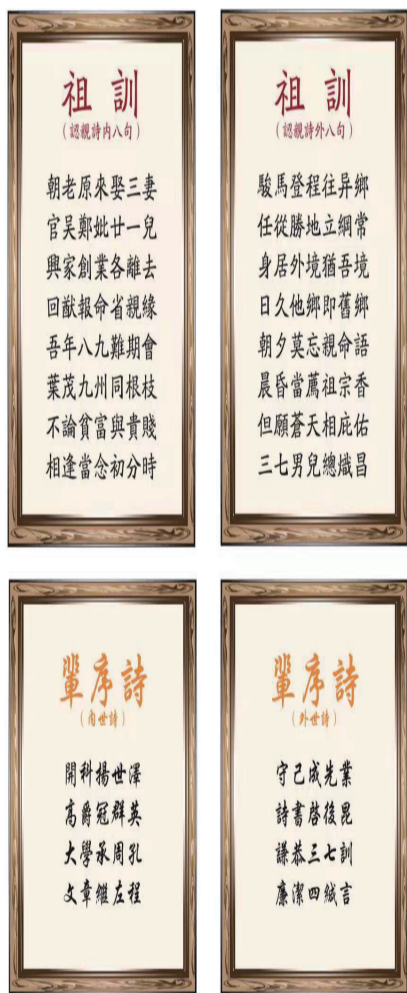 祖訓
（認親詩内八句）
朝老原來娶三妻
官吴鄭妣廿一兒
興家創業各離去
回猷報命省親緣
吾年八九難期會
葉茂九州同根枝
不論貧富與貴賤
相逢當念初分時
祖訓
（認親詩外八句）
駿馬登程往异鄉
任從勝地立綱常
身居外境猶吾境
日久他鄉即舊鄉
朝夕莫忘親命語
晨昏當薦祖宗香
但願蒼天相庇佑
三七男兒總熾昌
輩序詩
（内世詩）
開科揚世澤
高爵冠群英
大學承周孔
文章繼左程
輩序詩
（外世詩）
守己成先業
詩書啓後昆
謙恭三七訓
廉潔四緘言